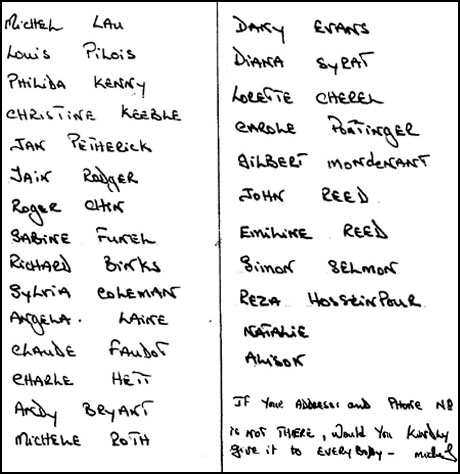 Michel Lau
Louis Pilois
Philida Kenny
Christine Keeble
Jan Petherick
Iain Rodger
Roger Chin
Sabine Funel
Richard Binks
Sylvia Coleman
Angela. Laine
Claude Faudot
Charle Hett
Andy Bryant
Michele Roth
Dany Evans
Diana Syrat
Lorette Cherel
Carole Pottinger
Gilbert Mondenant
John Reed
Emiline Reed
Simon Selmon
Reza Hosseinpour
Natalie
Alison
If Your Addresses and Phone Nb
is not there, would You Kindly
give it to Everybody -